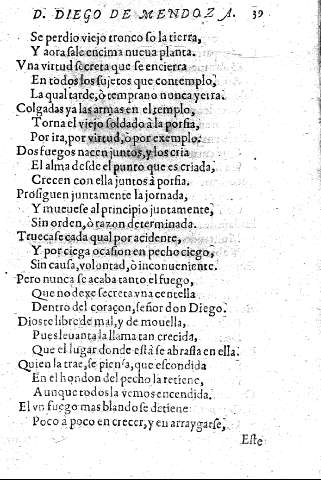 D. DIEGO DE MENDOZA. 39
Se perdio viejo tronco so la tierra,
Y aora sale encima nueua planta.
Vna virtud secreta que se encierra
En todos los sujetos que contemplo,
La qual tarde, ò temprano nunca yerra.
Colgadas ya las armas en el templo,
Torna el viejo soldado à la porfia,
Por ira, por virtud, ò por exemplo.
Dos fuegos nacen juntos, y los cria
El alma desde el punto que es criada,
Crecen con ella juntos à porfia.
Prosiguen juntamente la jornada,
Y mueuese al principio juntamente,
Sin orden, ò razon determinada.
Truecase cada qual por acidente,
Y por ciega ocasion en pecho ciego,
Sin causa, voluntad, ò inconueniente.
Pero nunca se acaba tanto el fuego,
Que no dexe secreta vna centella
Dentro del coraçon, señor don Diego.
Dios te libre de mal, y de mouella,
Pues leuanta la llama tan crecida,
Que el lugar donde està se abrasa en ella.
Quien la trae, se piensa, que escondida
En el hondon del pecho la retiene,
Aunque todos la vemos encendida.
El vn fuego mas blando se detiene
Poco a poco en crecer, y en arraygarse,
Este